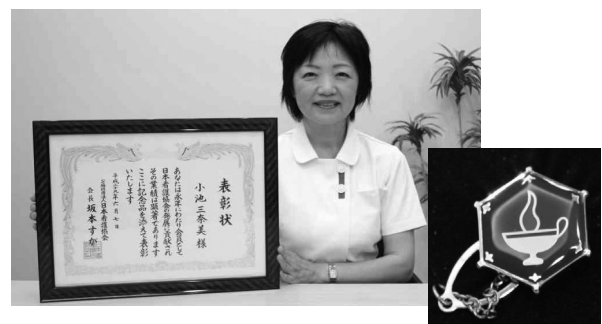 表彰状
小池三奈美 様
あなたは永年にわたり会員として
日本看護協会の発展に貢献され
その業績は顕著であります
ここに記念品を添えて表彰
いたします
平成二十九年六月七日
公益社団法人日本看護協会
会長 坂本すが